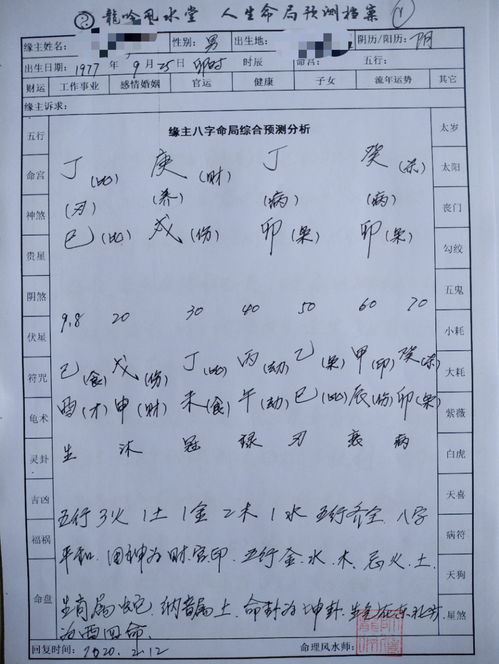 龍吟風水堂 人生命局预测档案
缘主姓名: 性别: 男 出生地: 阴历/阳历: 阴
出生日期: 1977 年 9 月 25日 卯时 时辰 命宫: 五行:
财运 工作事业 感情婚姻 官运 健康 子女 流年运势 其它
缘主诉求:
五行 缘主八字命局综合预测分析 太岁
命宫 丁(比) 庚(财) 丁 癸(杀) 太阳
神煞 (刃) (养) (病) (病) 丧门
贵星 巳(比) 戌(伤) 卯(枭) 卯(枭) 勾绞
阴煞 五鬼
伏星 9.8 20 30 40 50 60 70 小耗
符咒 己(食) 戊(伤) 丁(比) 丙(劫) 乙(枭) 甲(印) 癸(杀) 大耗
龟术 酉(才) 申(财) 未(食) 午(劫) 巳(比) 辰(伤) 卯(枭) 紫薇
灵卦 生 沐 冠 禄 刃 衰 病 白虎
吉凶 天喜
五行3火1土1金2木1水 五行齐全.八字
福祸 病符
平和.用神为财官印.五行金.水.木.忌火.土.
天狗
命盘 生肖属蛇.纳音属土.命卦为坤卦. 星煞
为西四命.
回复时间: 2020.2.12 命理风水师: